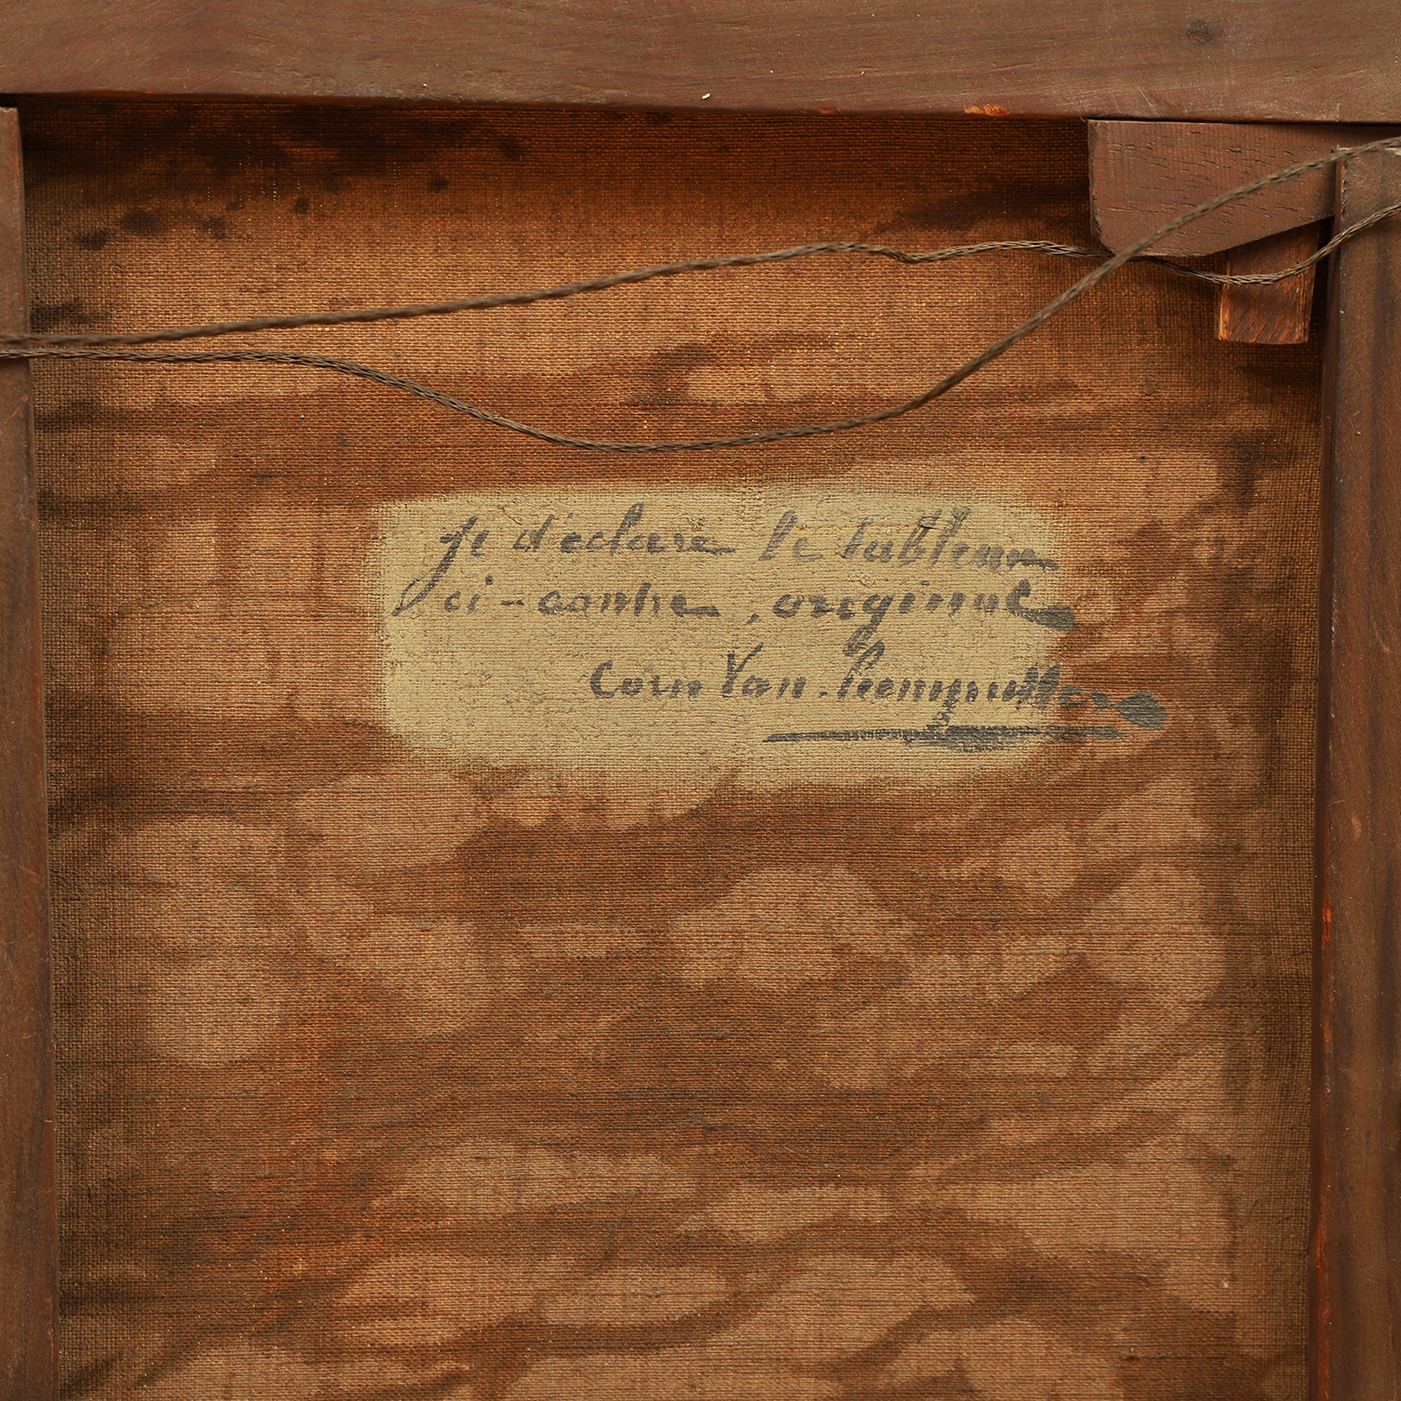 je déclare le tableau
ci-contre, original
Corn Van. Leemputten